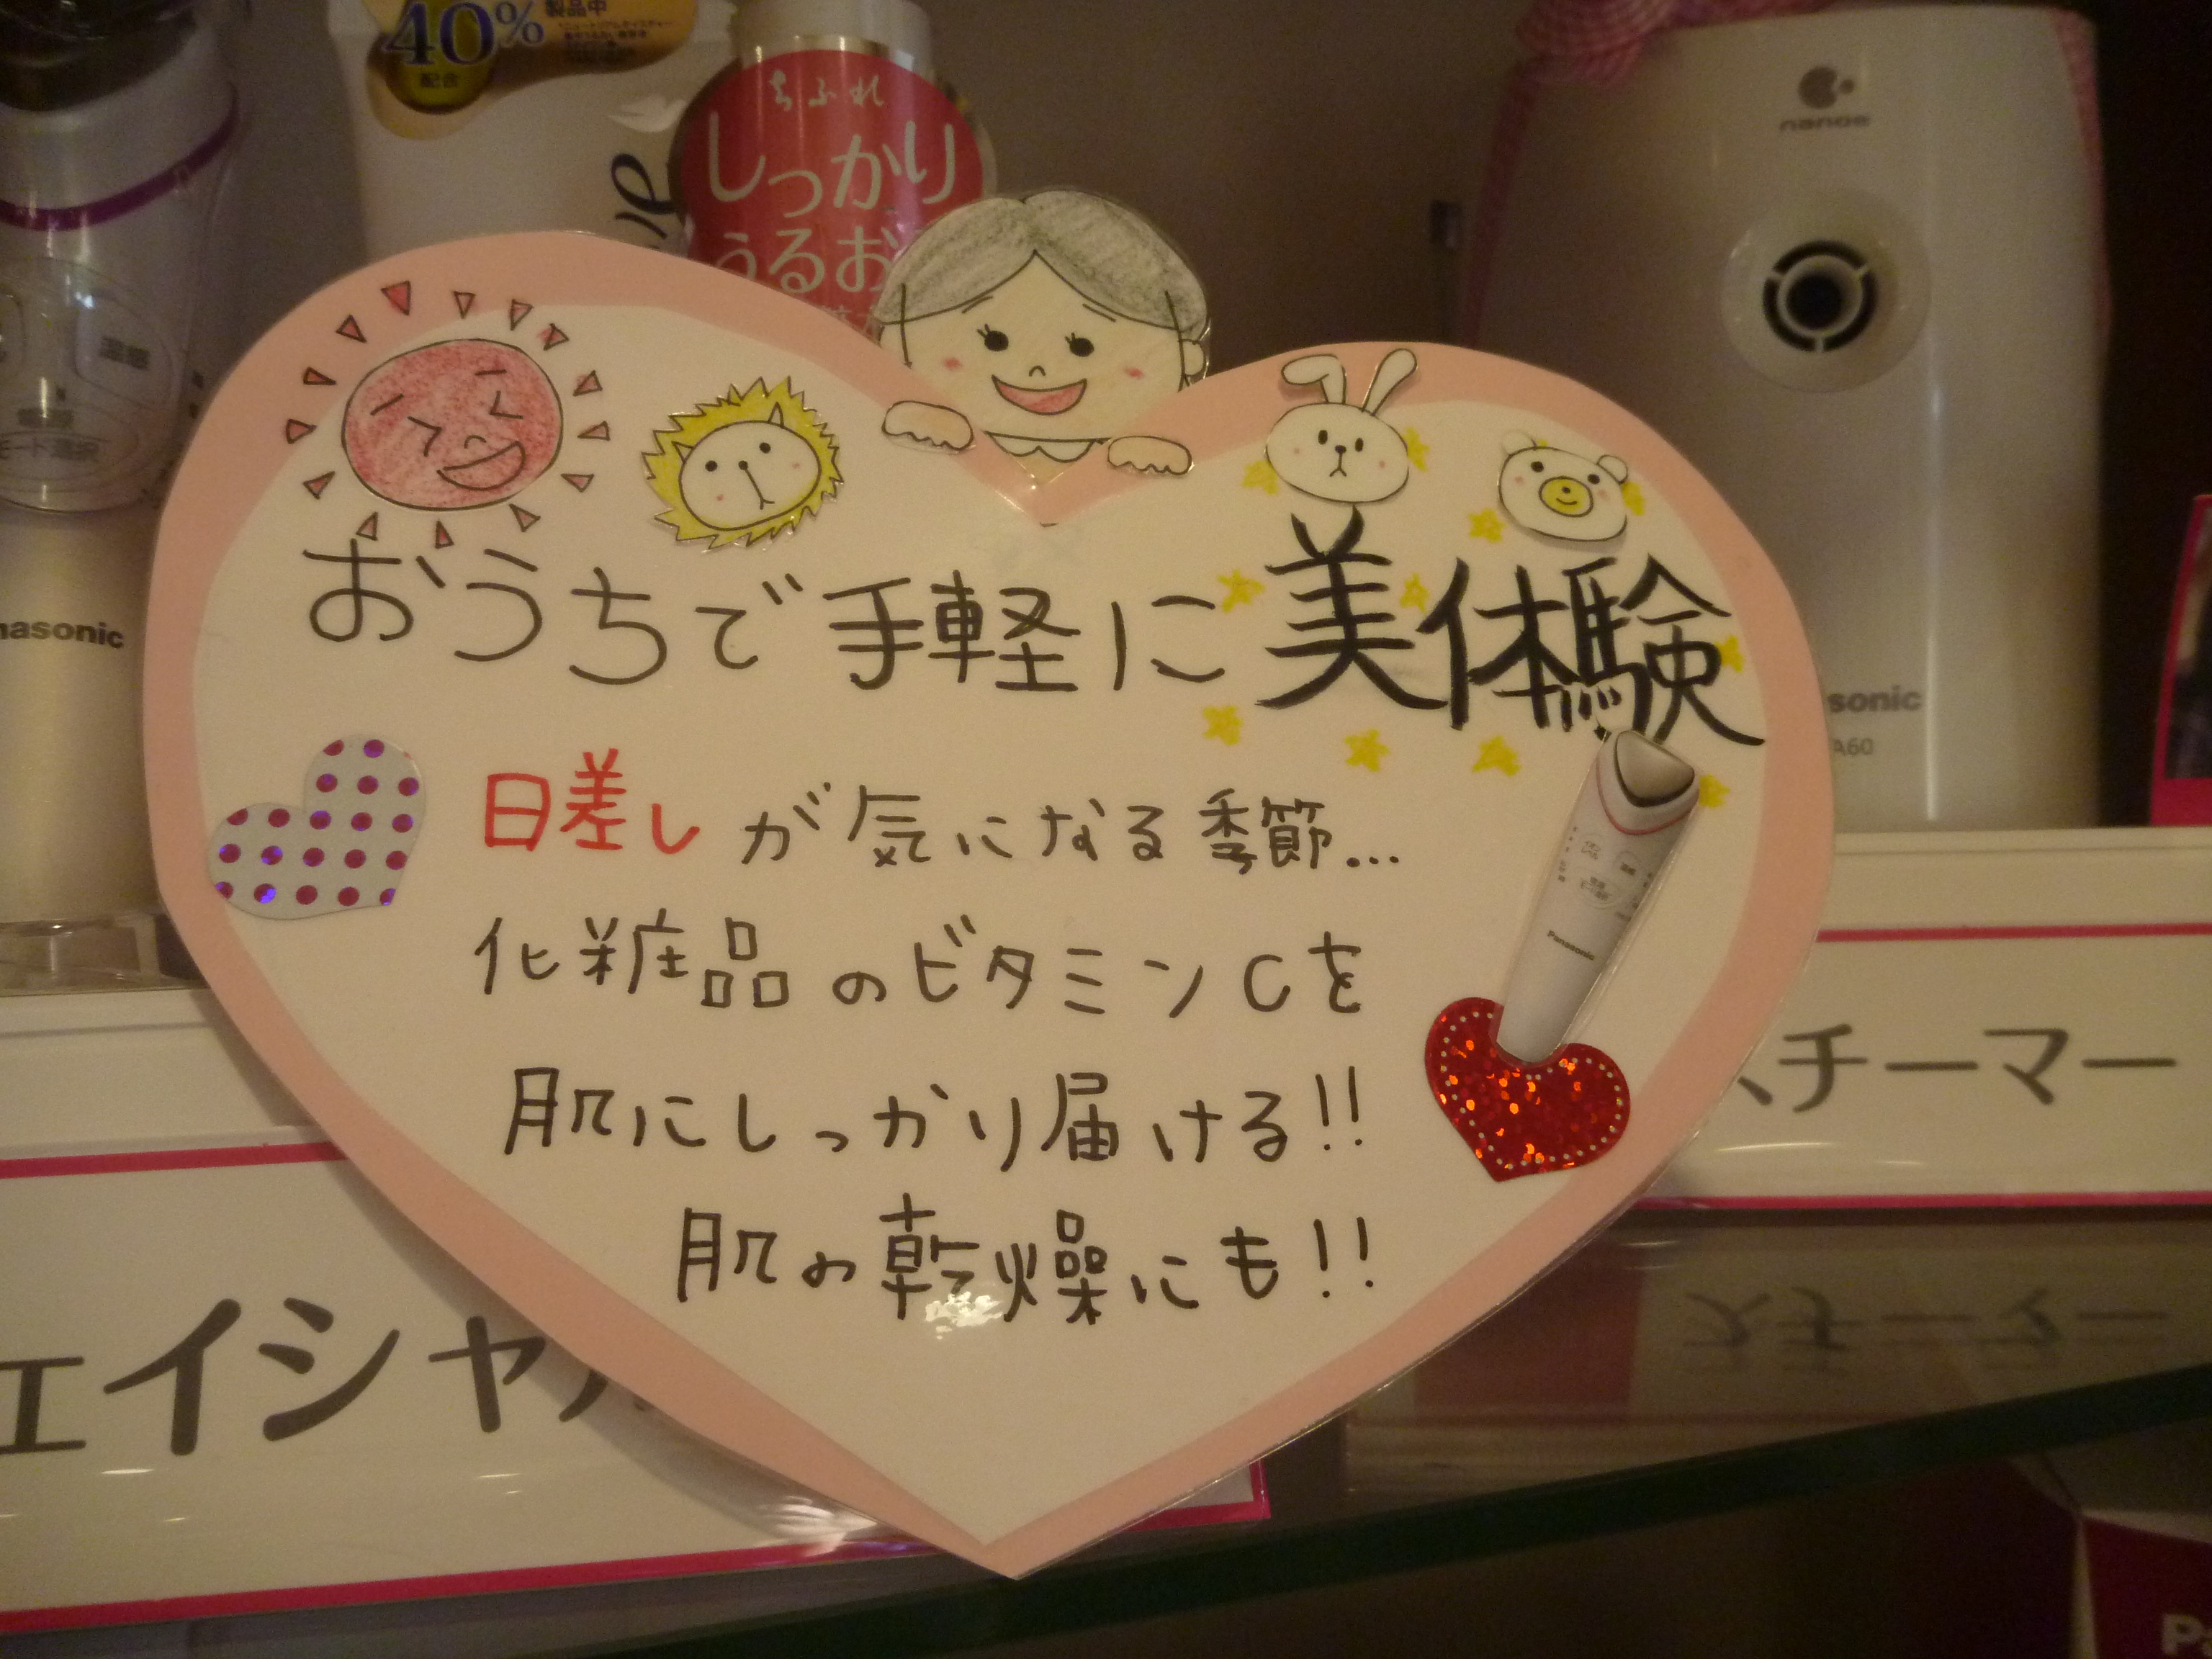 40%
製品中
配合
ちふれ
しっかり
うるお
nanoe
温感
モード選択
nasonic
おうちで手軽に美体験
日差しが気になる季節...
化粧品のビタミンCを
肌にしっかり届ける!!
肌の乾燥にも!!
Panasonic
sonic
A60
スチーマー
ェイシャ